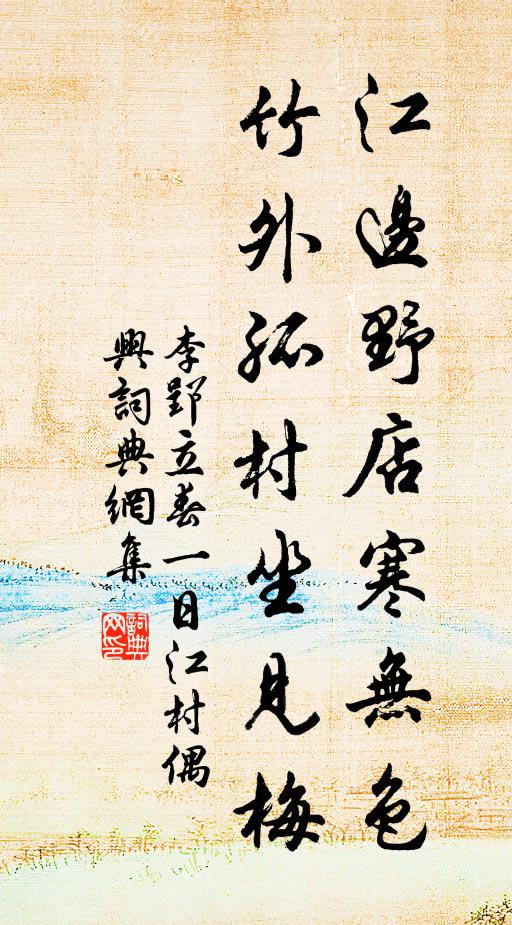 江邊野店寒無色
竹外孤村坐見梅
李郢立春一日江村偶
興詞典網集
詞典
网印